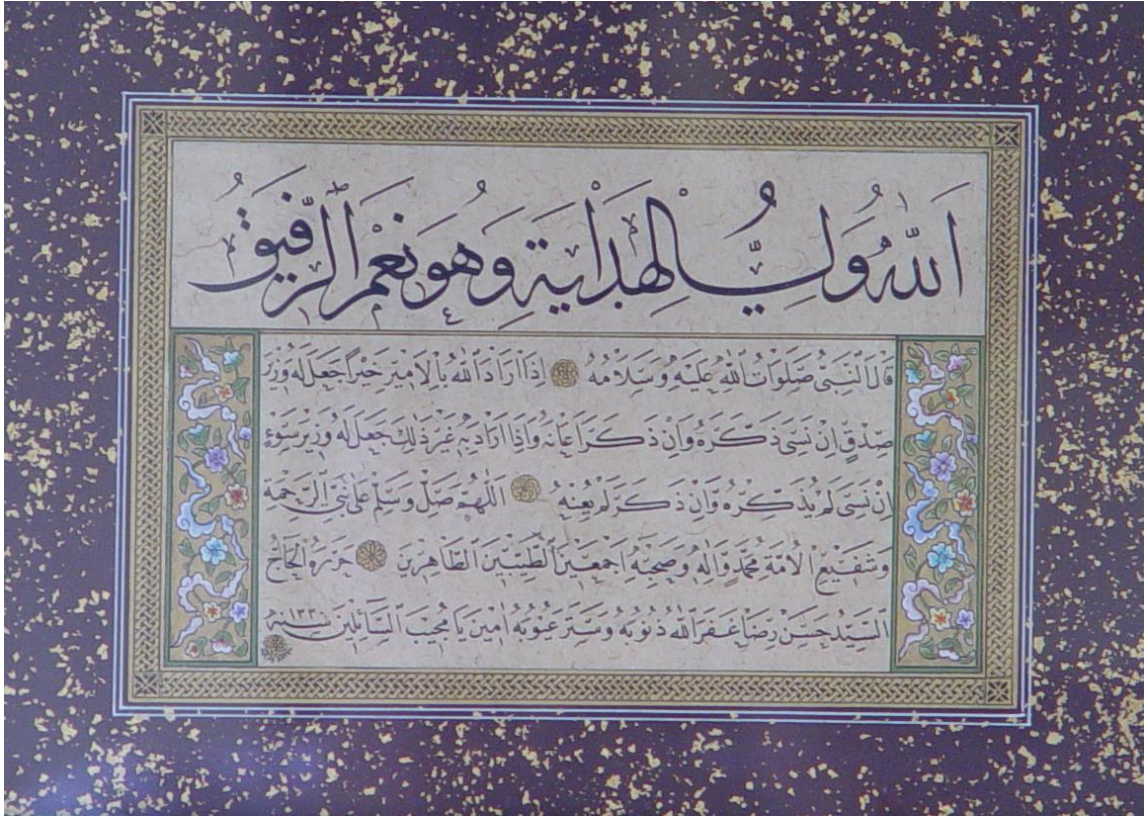 اَللّٰهُ وَلِيُّ الْهِدَايَةِ وَهُوَ نِعْمَ الرَّفِيقُ
قَالَ النَّبِىُّ صَلَوَاتُ اللّٰهِ عَلَيْهِ وَسَلَامُهُ اِذَا اَرَادَ اللّٰهُ بِالْاَمِيرِ خَيْرًا جَعَلَ لَهُ وَزِيرَ
صِدْقٍ اِنْ نَسِىَ ذَكَّرَهُ وَاِنْ ذَكَرَ اَعَانَهُ وَاِذَا اَرَادَ بِهِ غَيْرَ ذٰلِكَ جَعَلَ لَهُ وَزِيرَ سُوْءٍ
اِنْ نَسِىَ لَمْ يُذَكِّرْهُ وَاِنْ ذَكَرَ لَمْ يُعِنْهُ اَللّٰهُمَّ صَلِّ وَسَلِّمْ عَلٰى نَبِىِّ الرَّحْمَةِ
وَشَفِيعِ الْاُمَّةِ مُحَمَّدٍ وَاٰلِهِ وَصَحْبِهِ اَجْمَعِينَ الطَّيِّبِينَ الطَّاهِرِينَ حَرَّرَهُ الْحَاجُّ
السَّيِّدُ حَسَنْ رِضَا غَفَرَ اللّٰهُ ذُنُوبَهُ وَسَتَرَ عُيُوبَهُ اٰمِينَ يَا مُجِيبَ السَّائِلِينَ سنه ١٣٣٠